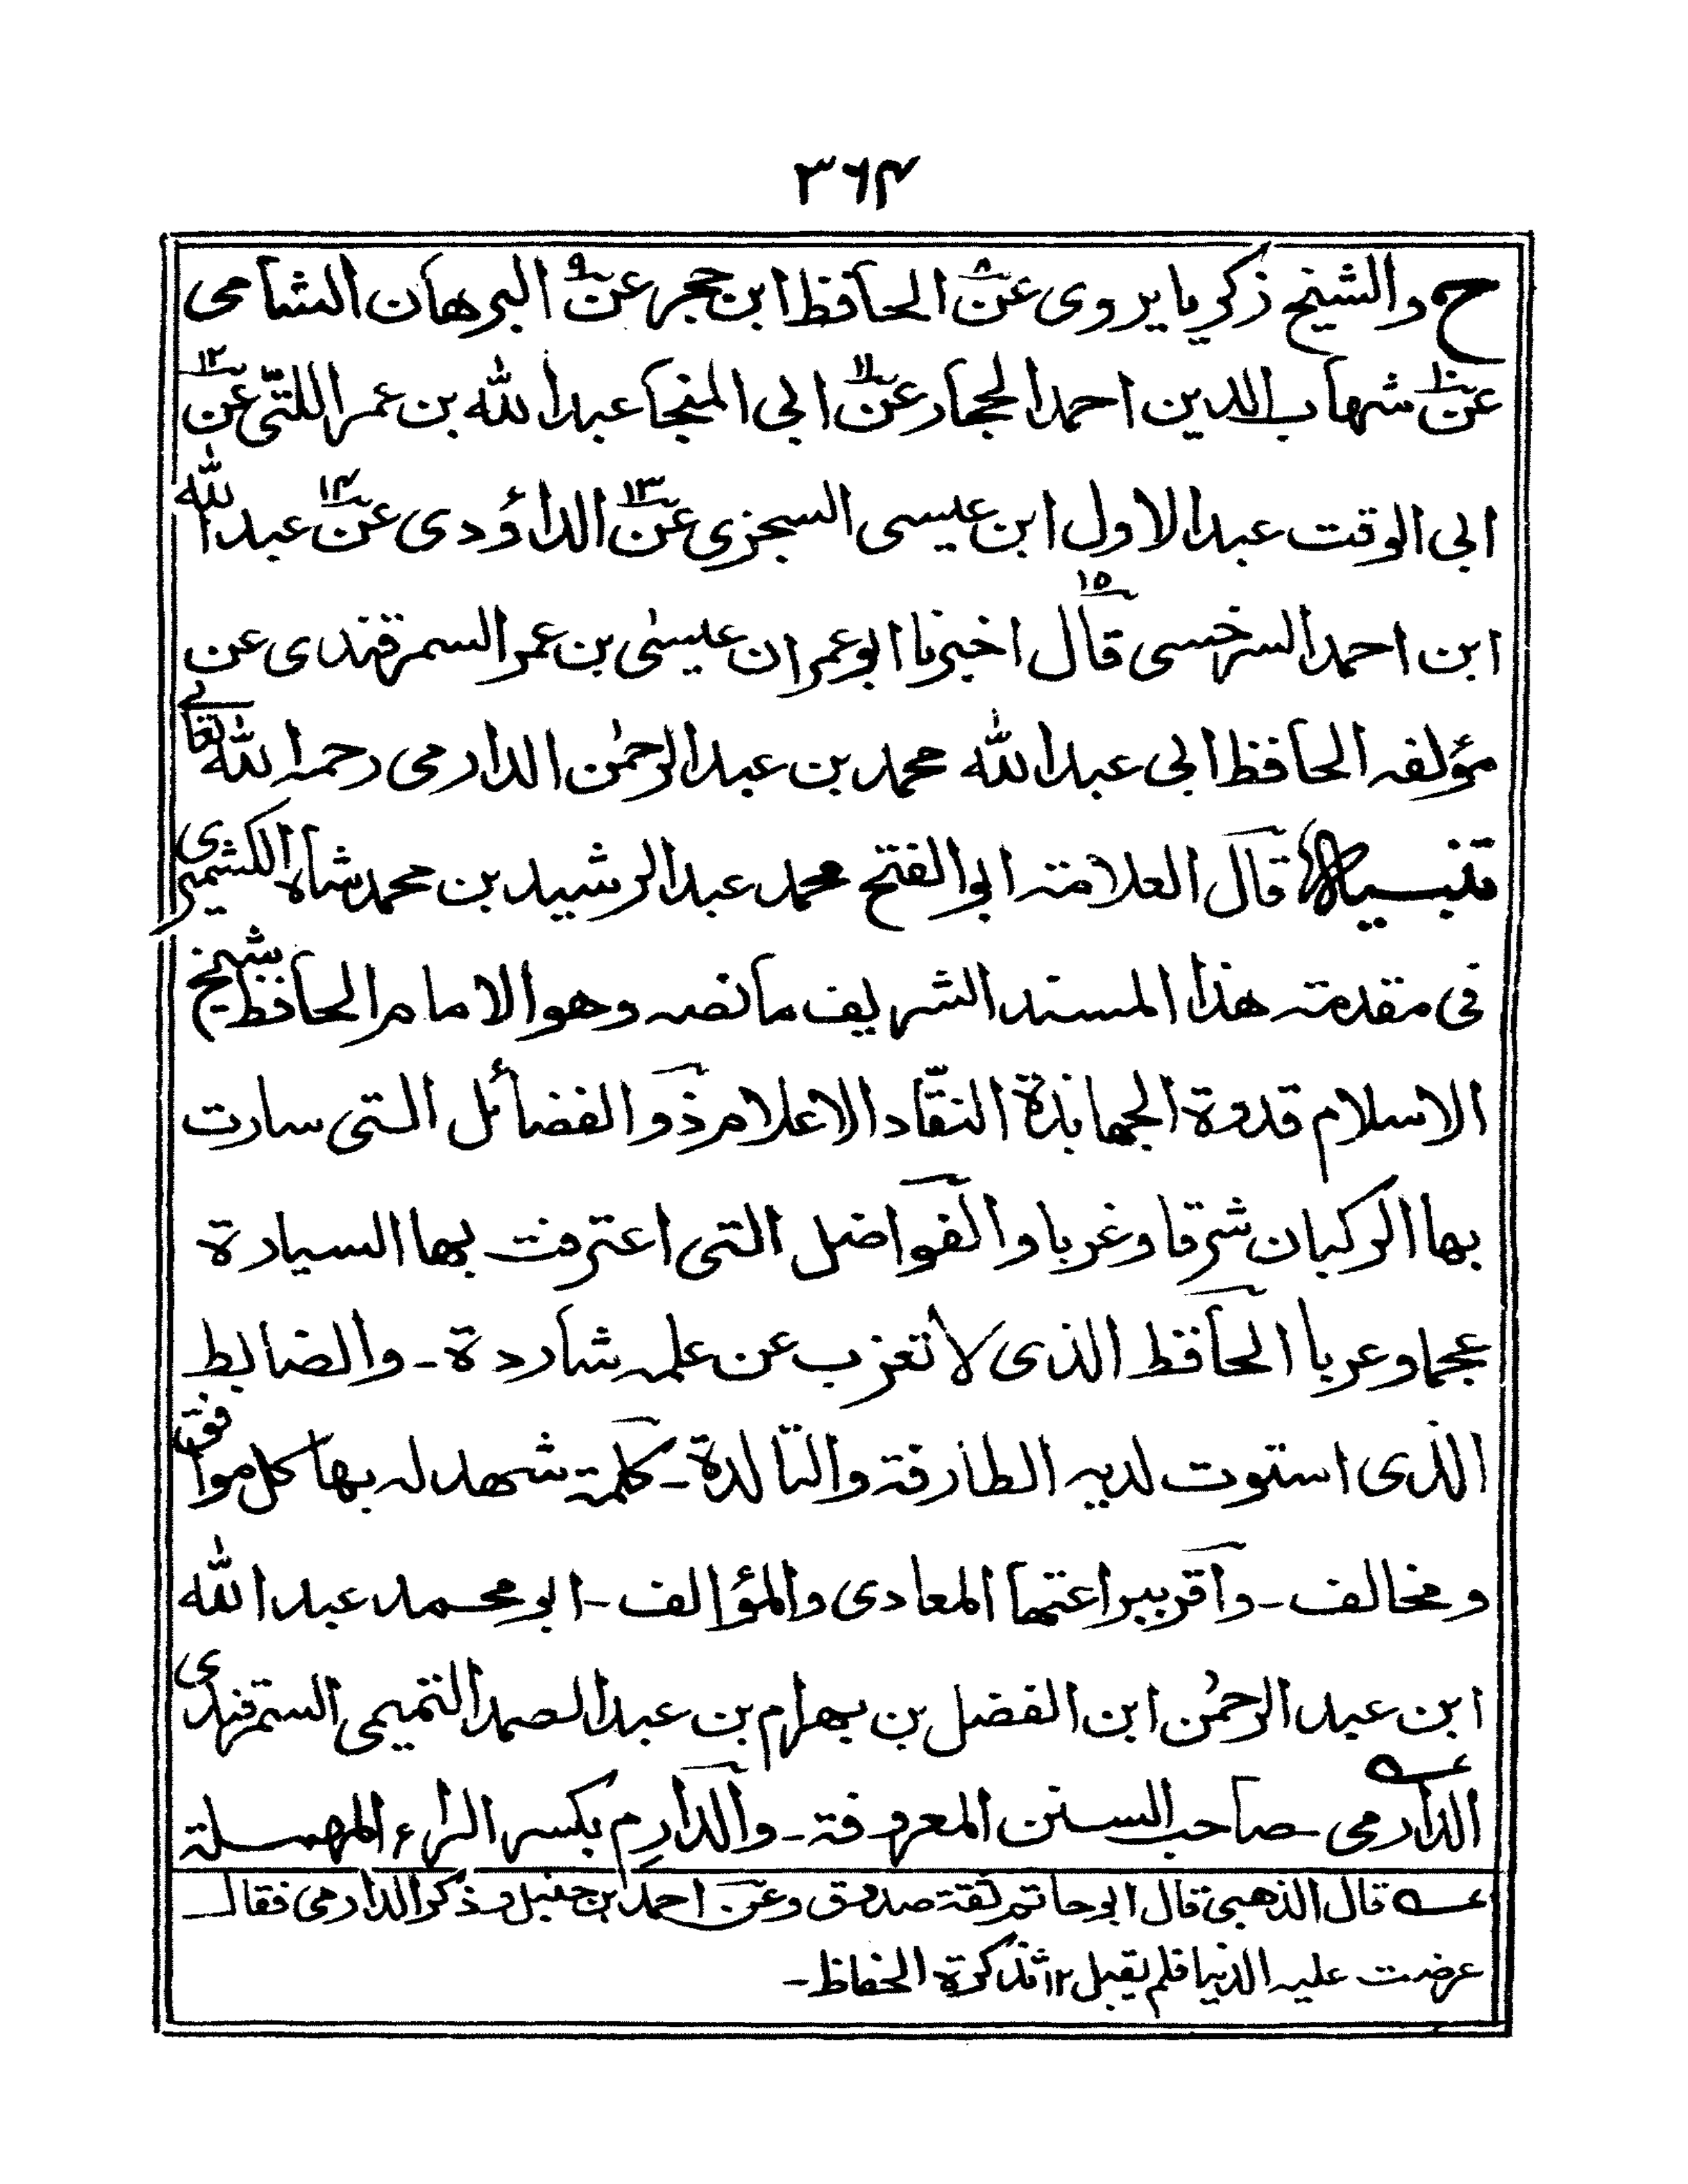 ۳۶۴
ح والشيخ زكريا يروى عن۸ الحافظ ابن حجر عن۹ البرهان الشامى
عن۱۰ شهاب الدين احمد الحجار عن۱۱ ابى المنجا عبد الله بن عمر اللتّى عن۱۲
ابى الوقت عبد الاول ابن عيسى السجزى عن۱۳ الداؤدى عن۱۴ عبد الله
ابن احمد السرخسى قال۱۵ اخبرنا ابو عمران عيسىٰ بن عمر السمرقندى عن
مؤلفه الحافظ ابى عبد الله محمد بن عبد الرحمٰن الدارمى رحمه الله تعالے
تنبيه قال العلامة ابو الفتح محمد عبد الرشيد بن محمد شاه الكشميرى
فى مقدمته هذا المسند الشريف ما نصه وهو الامام الحافظ شيخ
الاسلام قدوة الجهابذة النقّاد الاعلام ذو الفضائل التى سارت
بها الركبان شرقا وغربا والفواضل التى اعترفت بها السيارة
عجما وعربا الحافظ الذى لا تعزب عن علمه شاردة - والضابط
الذى استوت لديه الطارفة والتالدة - كلمة شهد له بها كل موافق
ومخالف - واقر ببراعتها المعادى والمؤالف - ابو محمد عبد الله
ابن عبد الرحمٰن ابن الفضل بن بهرام بن عبد الصمد التميمى السمرقندى
الدارمى عـه - صاحب السنن المعروفة - والدارِم بكسر الراء المهملة
عـه قال الذهبى قال ابو حاتم ثقة صدوق وعن احمد بن حنبل وذكر الدارمى فقال
عرضت عليه الدنيا فلم يقبل ۱۲ تذكرة الحفاظ -